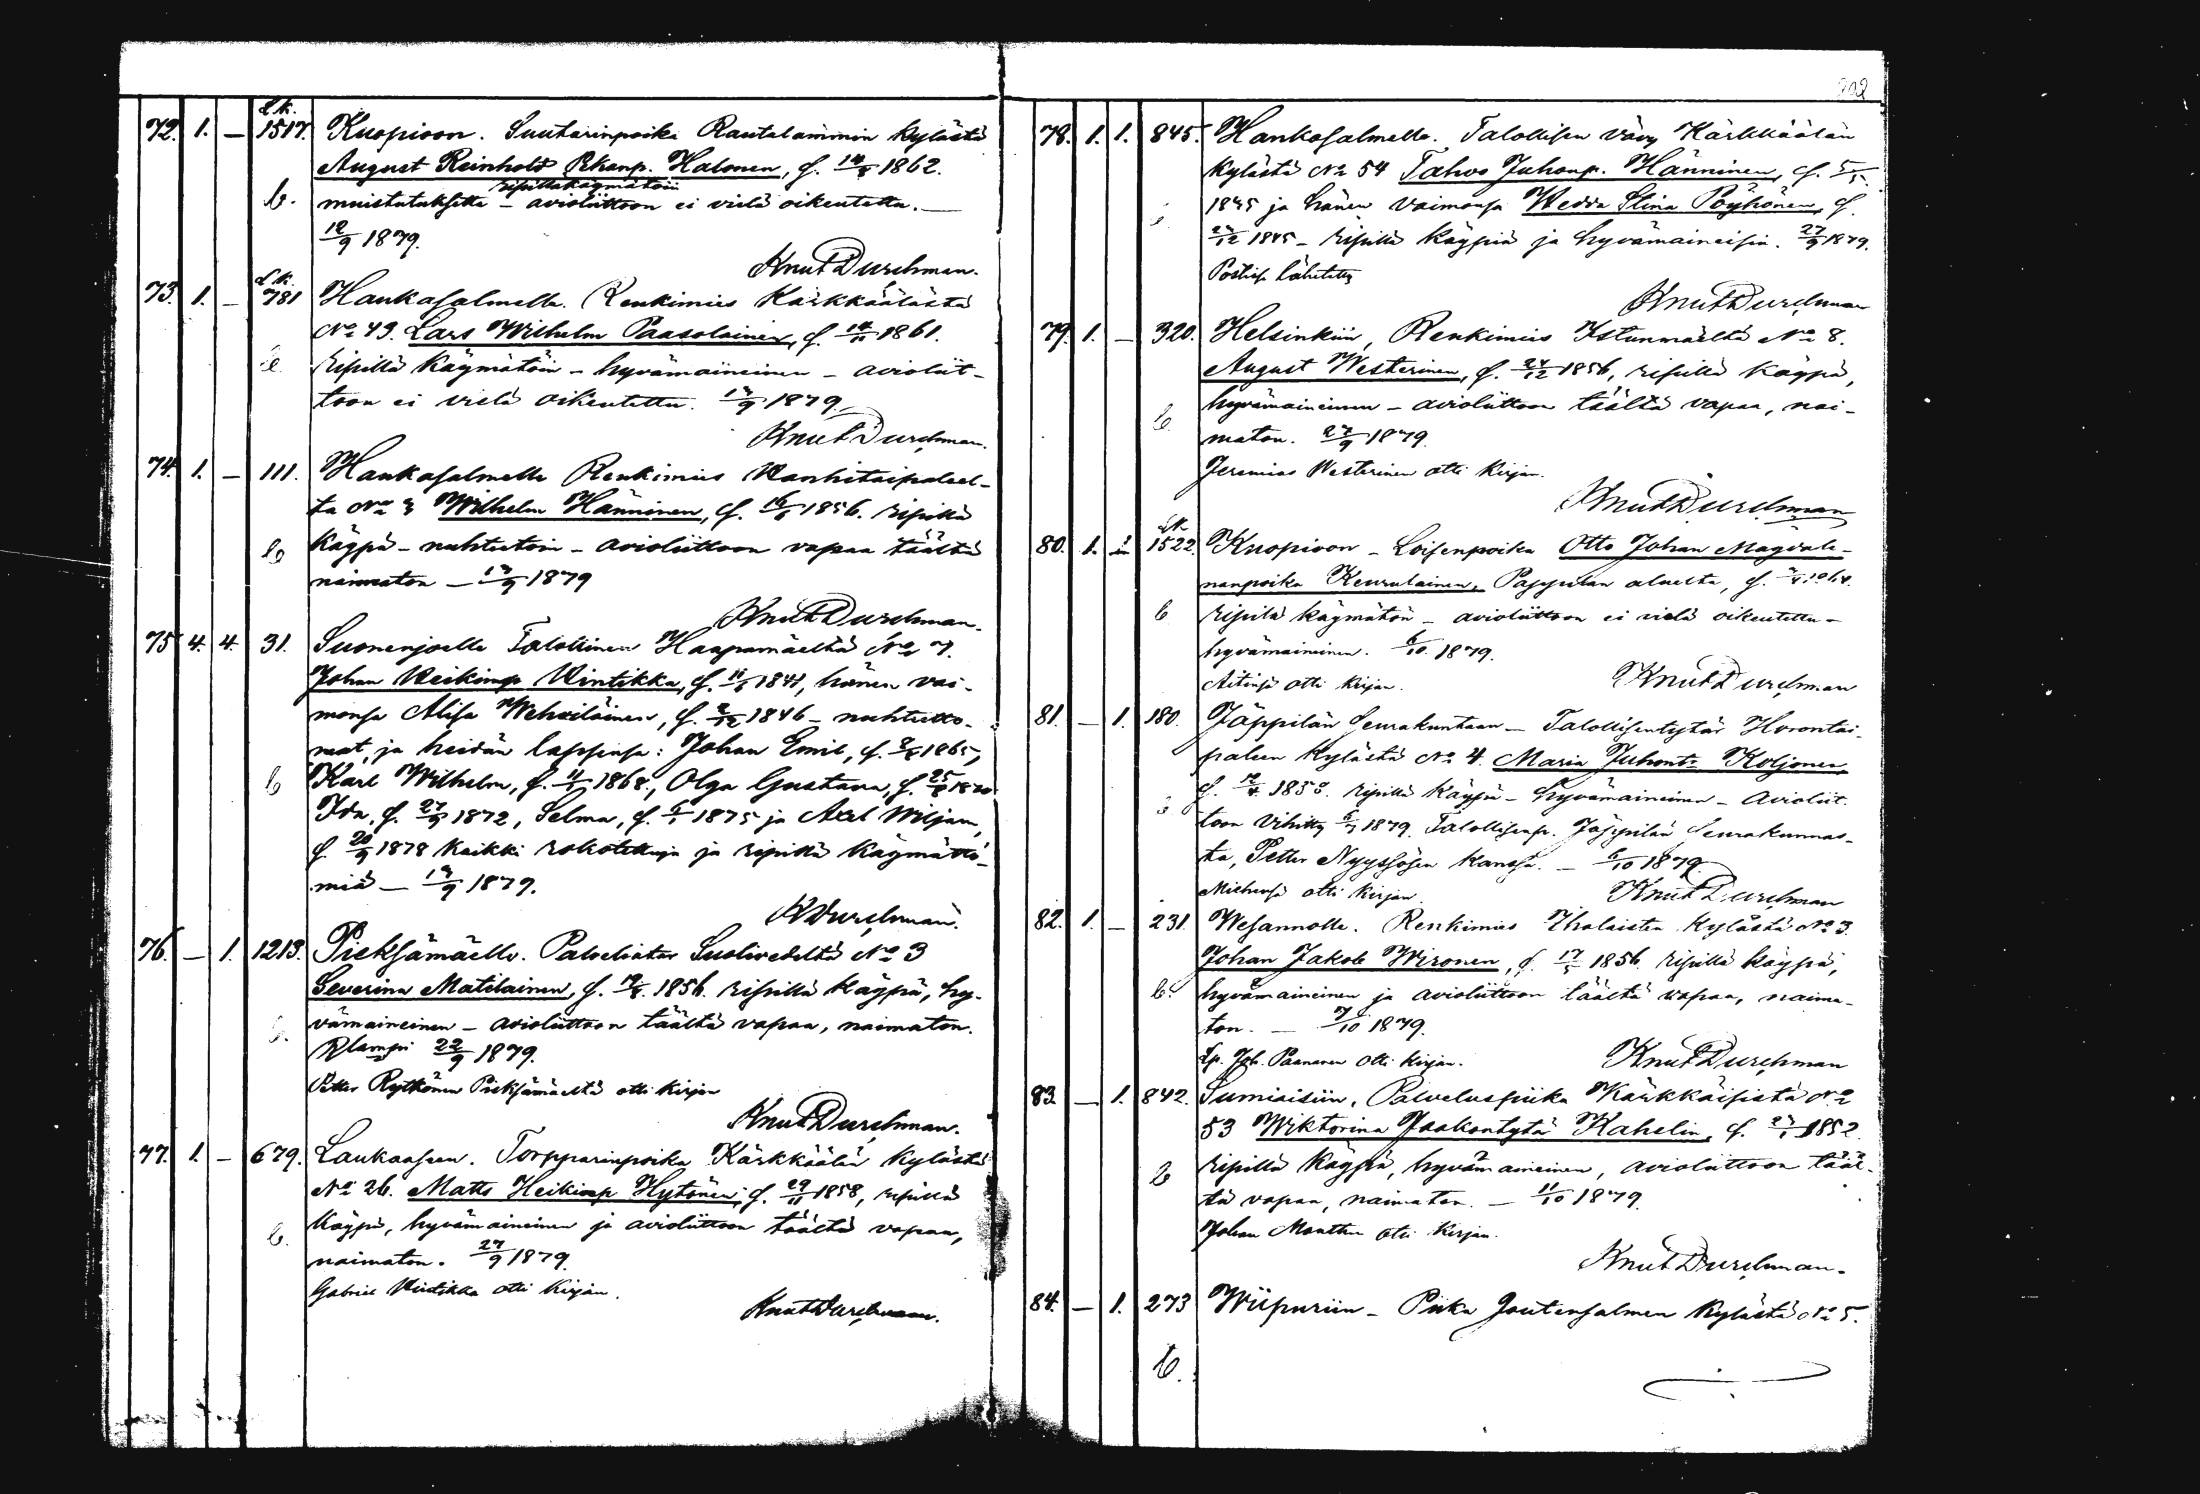 202
L.k.
72. 1. — 1517. Kuopioon. Suutarinpoika Rautalammin kylästä
August Reinhold Pekanp. Halonen, f. 14/5 1862.
ripillä käymätöin
b. muistutuksetta – avioliittoon ei vielä oikeutettu. —
12/9 1879.
Knut Durchman.
L.k.
73. 1. — 781 Hankasalmelle. Renkimies Kärkkäälästä
No 49. Lars Wilhelm Paasolainen, f. 14/11 1861.
ripillä käymätöin – hyvämaineinen – aviolit-
toon ei vielä oikeutettu. 13/9 1879.
Knut Durchman.
74. 1. — 111. Hankasalmelle Renkimies Wanhitaipaleel-
ta No 3 Wilhelm Hänninen, f. 16/6 1856. ripillä
b käypä – nuhteetoin – avioliittoon vapaa täältä
naimaton — 13/9 1879
Knut Durchman.
75 4. 4. 31. Suonenjoelle Talollinen Haapamäeltä No 7.
Johan Heikinp Vintikka, f. 11/6 1841, hänen vai-
monsa Alisa Wehviläinen, f. 2/12 1846 – nuhteetto-
mat, ja heidän lapsensa: Johan Emil, f. 1865,
b Karl Wilhelm, f. 4/1 1868., Olga Gustava, f. 25/8 1870
Ida, f. 27/9 1872, Selma, f. 6/1 1875 ja Axel Wiljam,
f. 20/9 1878 kaikki rokotettuja ja ripillä käymättö-
miä — 13/9 1879.
K Durchman.
76. — 1. 1213. Pieksämäelle. Palveliatar Suolivedeltä No 3
Severina Matilainen, f. 1856. ripillä käypä, hy-
b. vämaineinen – avioliittoon täältä vapaa, naimaton.
Rlampi 22/9 1879.
Petter Rytkönen Pieksämäeltä otti kirjan
Knut Durchman.
77. 1. — 679. Laukaaseen. Torpparinpoika Kärkkäälän kylästä
No 26. Matts Heikinp Hytönen, f. 29/11 1858, ripillä
b. käypä, hyvämaineinen ja avioliittoon täältä vapaa,
naimaton. 27/9 1879.
Gabriel Vintikka otti kirjan.
Knut Durchman.
78. 1. 1. 845. Hankasalmelle. Talollisen vävy Kärkkäälän
kylästä No 54 Tahvo Juhonp. Hänninen, f. 5/5
1845 ja hänen vaimonsa Hedda Stina Pöyhönen, f.
23/12 1845 – ripillä käypiä ja hyvämaineisia. 27/9 1879.
Postissa lähetetty
Knut Durchman
79. 1. — 320. Helsinkiin, Renkimies Istunmäeltä No 8.
August Westerinen, f. 24/12 1856, ripillä käypä,
b hyvämaineinen – avioliittoon täältä vapaa, nai-
maton. 27/9 1879.
Jeremias Westerinen otti kirjan.
Knut Durchman
L.k.
80. 1. — 1522. Kuopioon – Loisenpoika Otto Johan Magdale-
nanpoika Keurulainen, Pappilan alueelta, f.
b ripillä käymätön – avioliittoon ei vielä oikeutettu –
hyvämaineinen. 6/10. 1879.
Äitinsä otti kirjan.
Knut Durchman
81. — 1. 180. Jäppilän seurakuntaan — Talollisentytär Horontai-
paleen kylästä No 4. Maria Juhont: Koljonen,
f. 12/4. 1858. ripillä käypä – hyvämaineinen – Avioliit-
toon vihitty 6/7 1879. Talollisenp. Jäppilän seurakunnas-
ta, Petter Nyyssösen kanssa. — 6/10 1879.
Miehensä otti kirjan.
Knut Durchman
82. 1. — 231. Wesannolle. Renkimies Ihalaisten kylästä No 3.
Johan Jakob Wironen, f. 17/5 1856. ripillä käypä,
b. hyvämaineinen ja avioliittoon täältä vapaa, naima-
ton. — 7/10 1879.
Lp. Joh. Paananen otti kirjan.
Knut Durchman
83. — 1. 842. Sumiaisiin. Palveluspiika Kärkkäisistä No
53 Wiktorina Jaakontytä Kahelin, f. 23/1 1852.
b ripillä käypä, hyvämaineinen, avioliittoon tääl-
tä vapaa, naimaton. — 11/10 1879.
Johan Manthu otti kirjan.
Knut Durchman.
84. — 1. 273 Wiipuriin – Piika Joutensalmen kylästä No 5.
b.